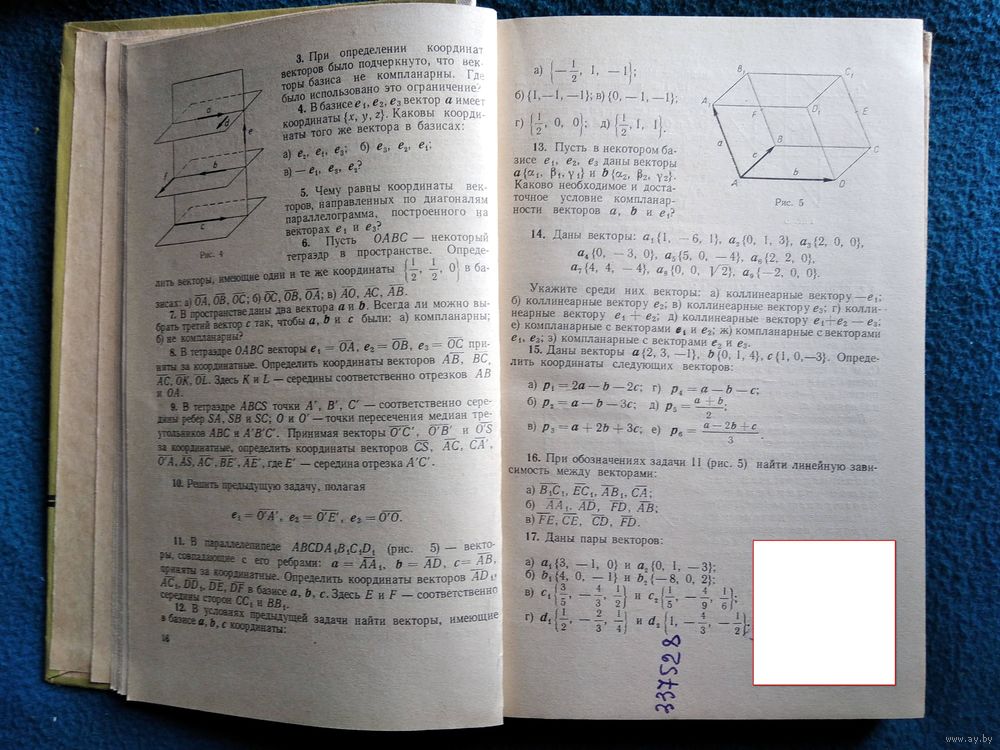 3. При определении координат
векторов было подчеркнуто, что век-
торы базиса не компланарны. Где
было использовано это ограничение?
4. В базисе e₁, e₂, e₃ вектор a имеет
координаты {x, y, z}. Каковы коорди-
наты того же вектора в базисах:
а) e₂, e₁, e₃; б) e₃, e₂, e₁;
в) — e₁, e₃, e₂?
5. Чему равны координаты век-
торов, направленных по диагоналям
параллелограмма, построенного на
векторах e₁ и e₃?
Рис. 4
6. Пусть OABC — некоторый
тетраэдр в пространстве. Опреде-
лить векторы, имеющие одни и те же координаты {1/2, 1/2, 0} в ба-
зисах: а) OA, OB, OC; б) OC, OB, OA; в) AO, AC, AB.
7. В пространстве даны два вектора a и b. Всегда ли можно вы-
брать третий вектор c так, чтобы a, b и c были: а) компланарны;
б) не компланарны?
8. В тетраэдре OABC векторы e₁ = OA, e₂ = OB, e₃ = OC при-
няты за координатные. Определить координаты векторов AB, BC,
AC, OK, OL. Здесь K и L — середины соответственно отрезков AB
и OA.
9. В тетраэдре ABCS точки A′, B′, C′ — соответственно сере-
дины ребер SA, SB и SC; O и O′ — точки пересечения медиан тре-
угольников ABC и A′B′C′. Принимая векторы O′C′, O′B′ и O′S
за координатные, определить координаты векторов CS, AC, CA′,
O′A, AS, AC′, BE′, AE′, где E′ — середина отрезка A′C′.
10. Решить предыдущую задачу, полагая
e₁ = O′A′, e₂ = O′E′, e₃ = O′O.
11. В параллелепипеде ABCDA₁B₁C₁D₁ (рис. 5) — векто-
ры, совпадающие с его ребрами: a = AA₁, b = AD, c = AB,
приняты за координатные. Определить координаты векторов AD₁,
AC₁, DD₁, DE, DF в базисе a, b, c. Здесь E и F — соответственно
середины сторон CC₁ и BB₁.
12. В условиях предыдущей задачи найти векторы, имеющие
в базисе a, b, c координаты:
16
а) {—1/2, 1, —1};
б) {1,—1, —1}; в) {0, —1, —1};
г) {1/2, 0, 0}; д) {1/2, 1, 1}.
13. Пусть в некотором ба-
зисе e₁, e₂, e₃ даны векторы
a{α₁, β₁, γ₁} и b{α₂, β₂, γ₂}.
Каково необходимое и доста-
точное условие компланар-
ности векторов a, b и e₁?
Рис. 5
14. Даны векторы: a₁{1, —6, 1}, a₂{0, 1, 3}, a₃{2, 0, 0},
a₄{0, —3, 0}, a₅{5, 0, —4}, a₆{2, 2, 0},
a₇{4, 4, —4}, a₈{0, 0, √2}, a₉{—2, 0, 0}.
Укажите среди них векторы: а) коллинеарные вектору —e₁;
б) коллинеарные вектору e₂; в) коллинеарные вектору e₃; г) колли-
неарные вектору e₁ + e₂; д) коллинеарные вектору e₁+e₂ — e₃;
е) компланарные с векторами e₁ и e₂; ж) компланарные с векторами
e₁, e₃; з) компланарные с векторами e₂ и e₃.
15. Даны векторы a{2, 3, —1}, b{0, 1, 4}, c{1, 0,—3}. Опреде-
лить координаты следующих векторов:
а) p₁ = 2a — b — 2c; г) p₄ = a — b — c;
б) p₂ = a — b — 3c; д) p₅ = (a + b)/2;
в) p₃ = a + 2b + 3c; е) p₆ = (a — 2b + c)/3.
16. При обозначениях задачи 11 (рис. 5) найти линейную зави-
симость между векторами:
а) B₁C₁, EC₁, AB₁, CA;
б) AA₁, AD, FD, AB;
в) FE, CE, CD, FD.
17. Даны пары векторов:
а) a₁{3, —1, 0} и a₂{0, 1, —3};
б) b₁{4, 0, —1} и b₂{—8, 0, 2};
в) c₁{3/5, —4/3, 1/2} и c₂{1/5, —4/9, 1/6};
г) d₁{1/2, —2/3, —1/4} и d₂{1, —4/3, —1/2};
337528
www.ay.by